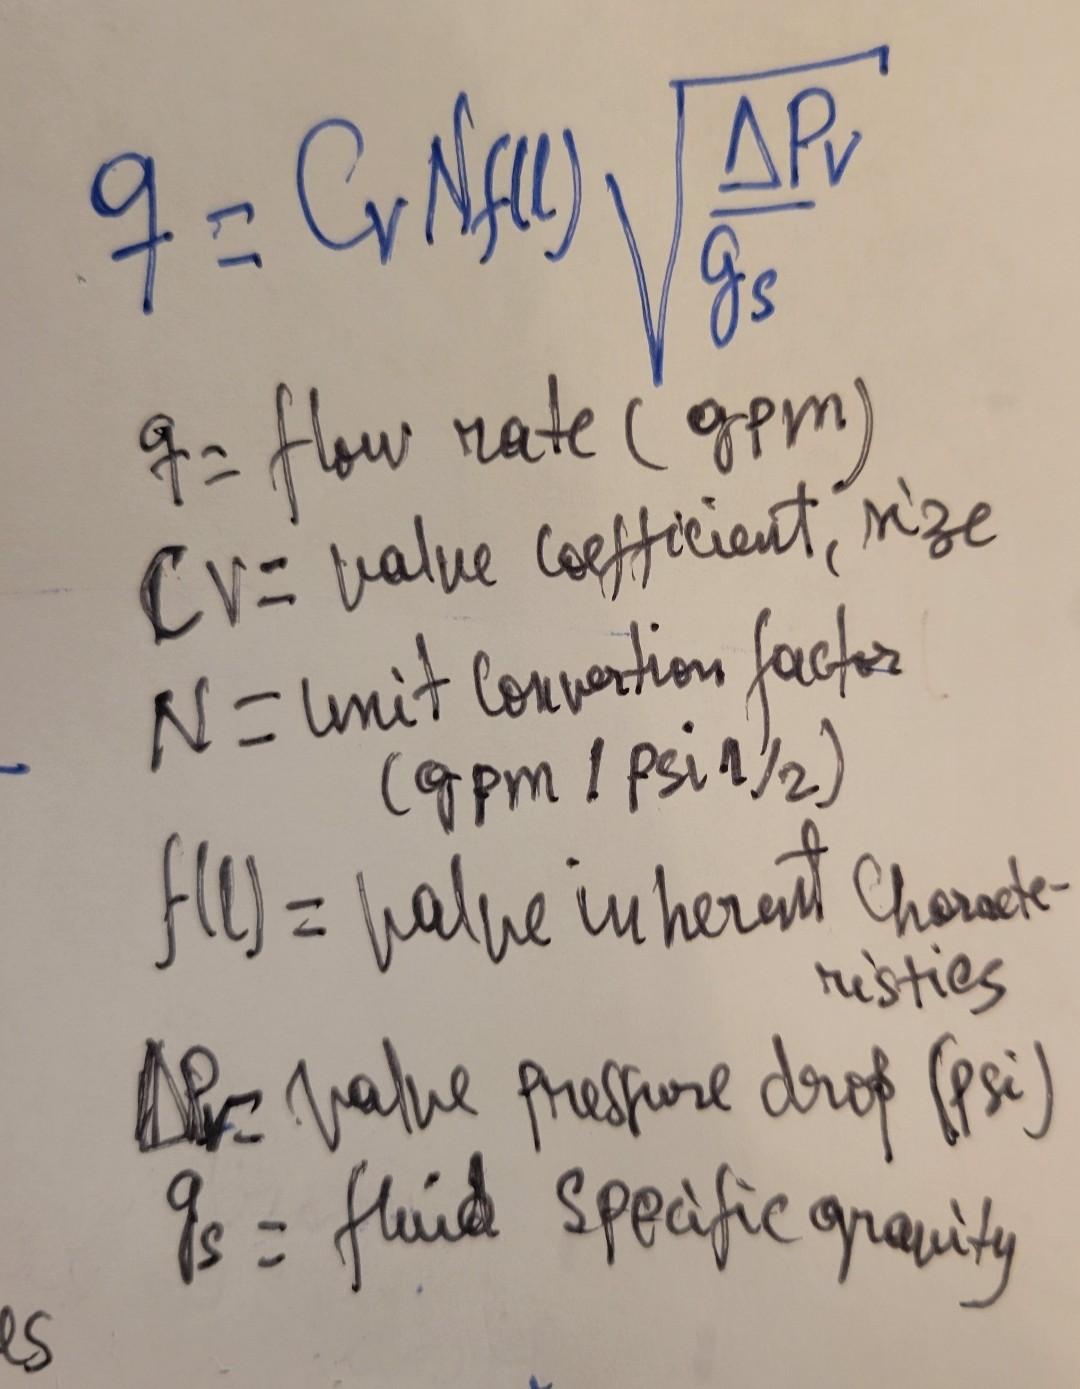 q = Cv N f(l) √(ΔPv / gs)
q = flow rate (gpm)
Cv = valve coefficient, size
N = Unit Convertion factor
(gpm / psi 1/2)
f(l) = valve inherent Characte-
ristics
ΔPv = valve pressure drop (psi)
gs = fluid specific gravity
es